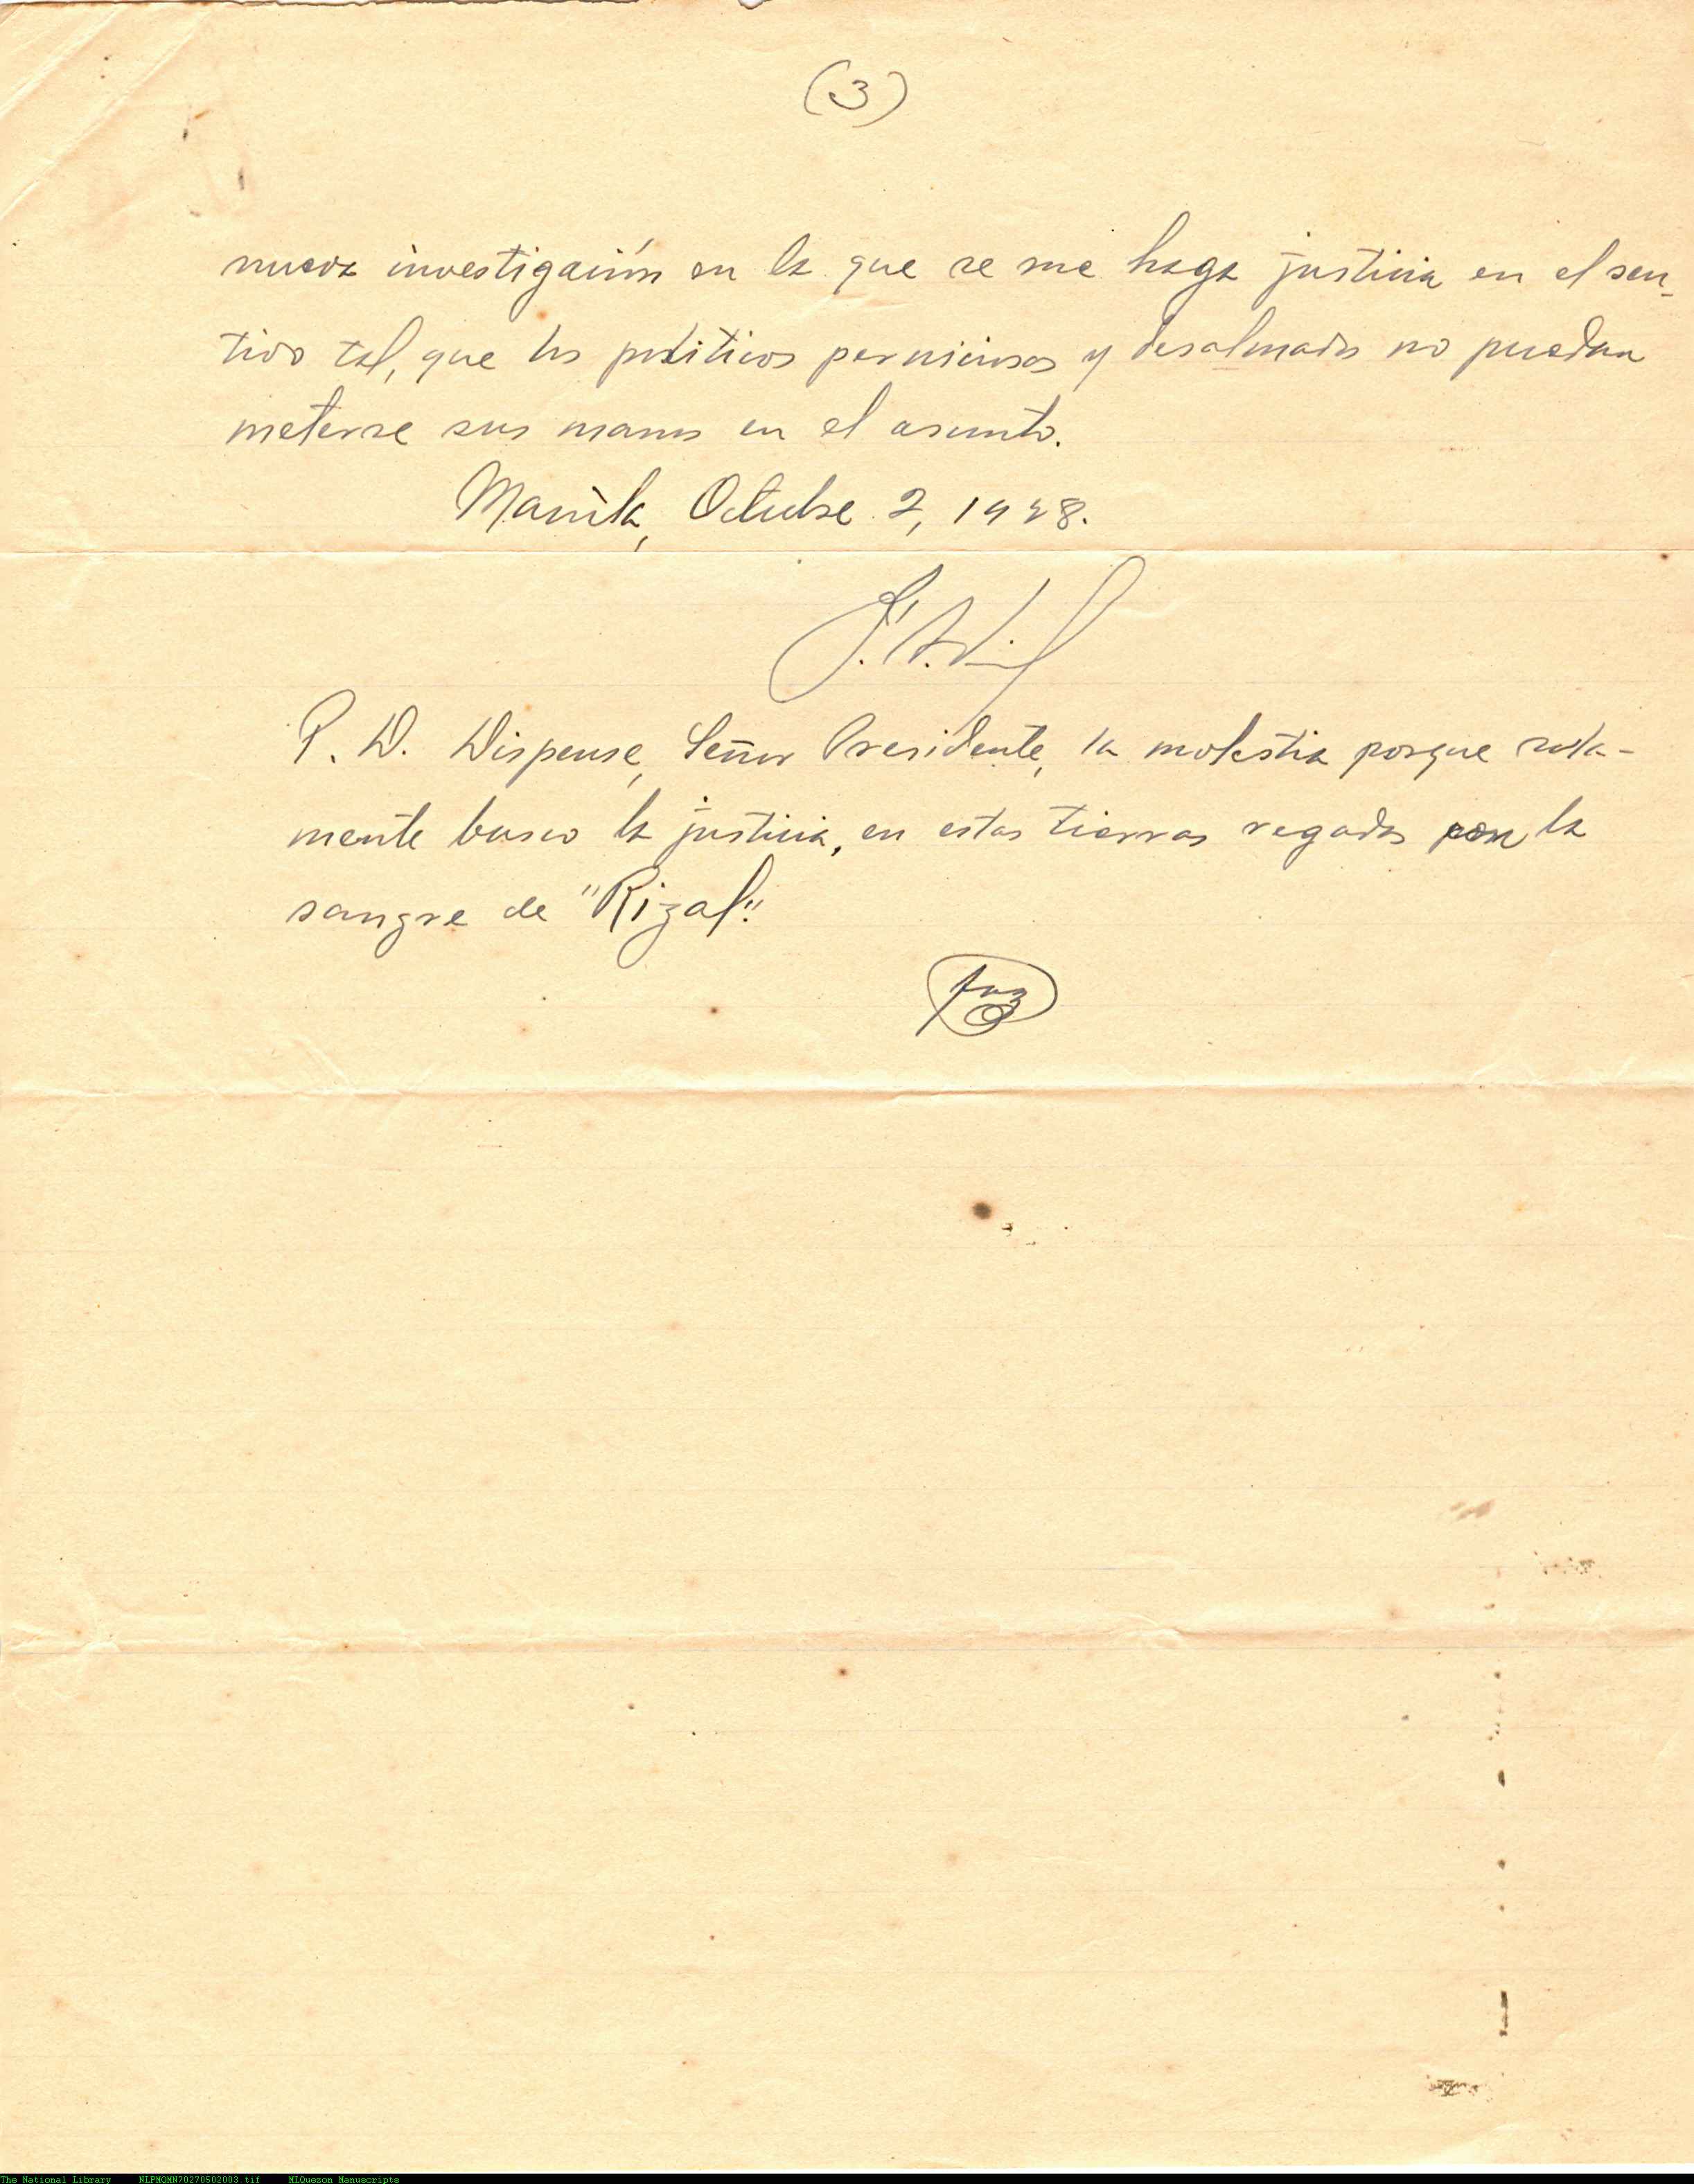 (3)
nueva investigación en la que se me haga justicia en el sen-
tido tal, que los politicos perniciosos y desalmados no puedan
meterse sus manos en el asunto.
Manila, Octubre 2, 1928.
P. D. Dispense, Señor Presidente, la molestia porque sola-
mente busco la justicia, en estas tierras regadas con la
sangre de "Rizal".
The National Library NLPMQMN70270502003.tif MLQuezon Manuscripts